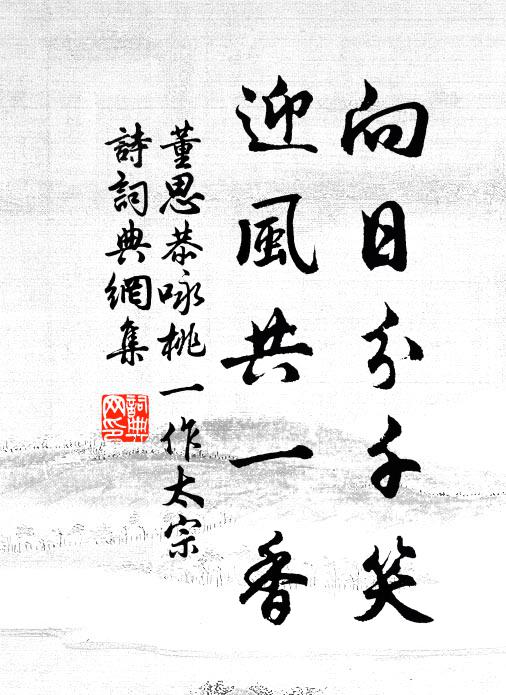 向日分千笑
迎風共一香
董思恭咏桃一作太宗
詩詞典網集
詞典网印